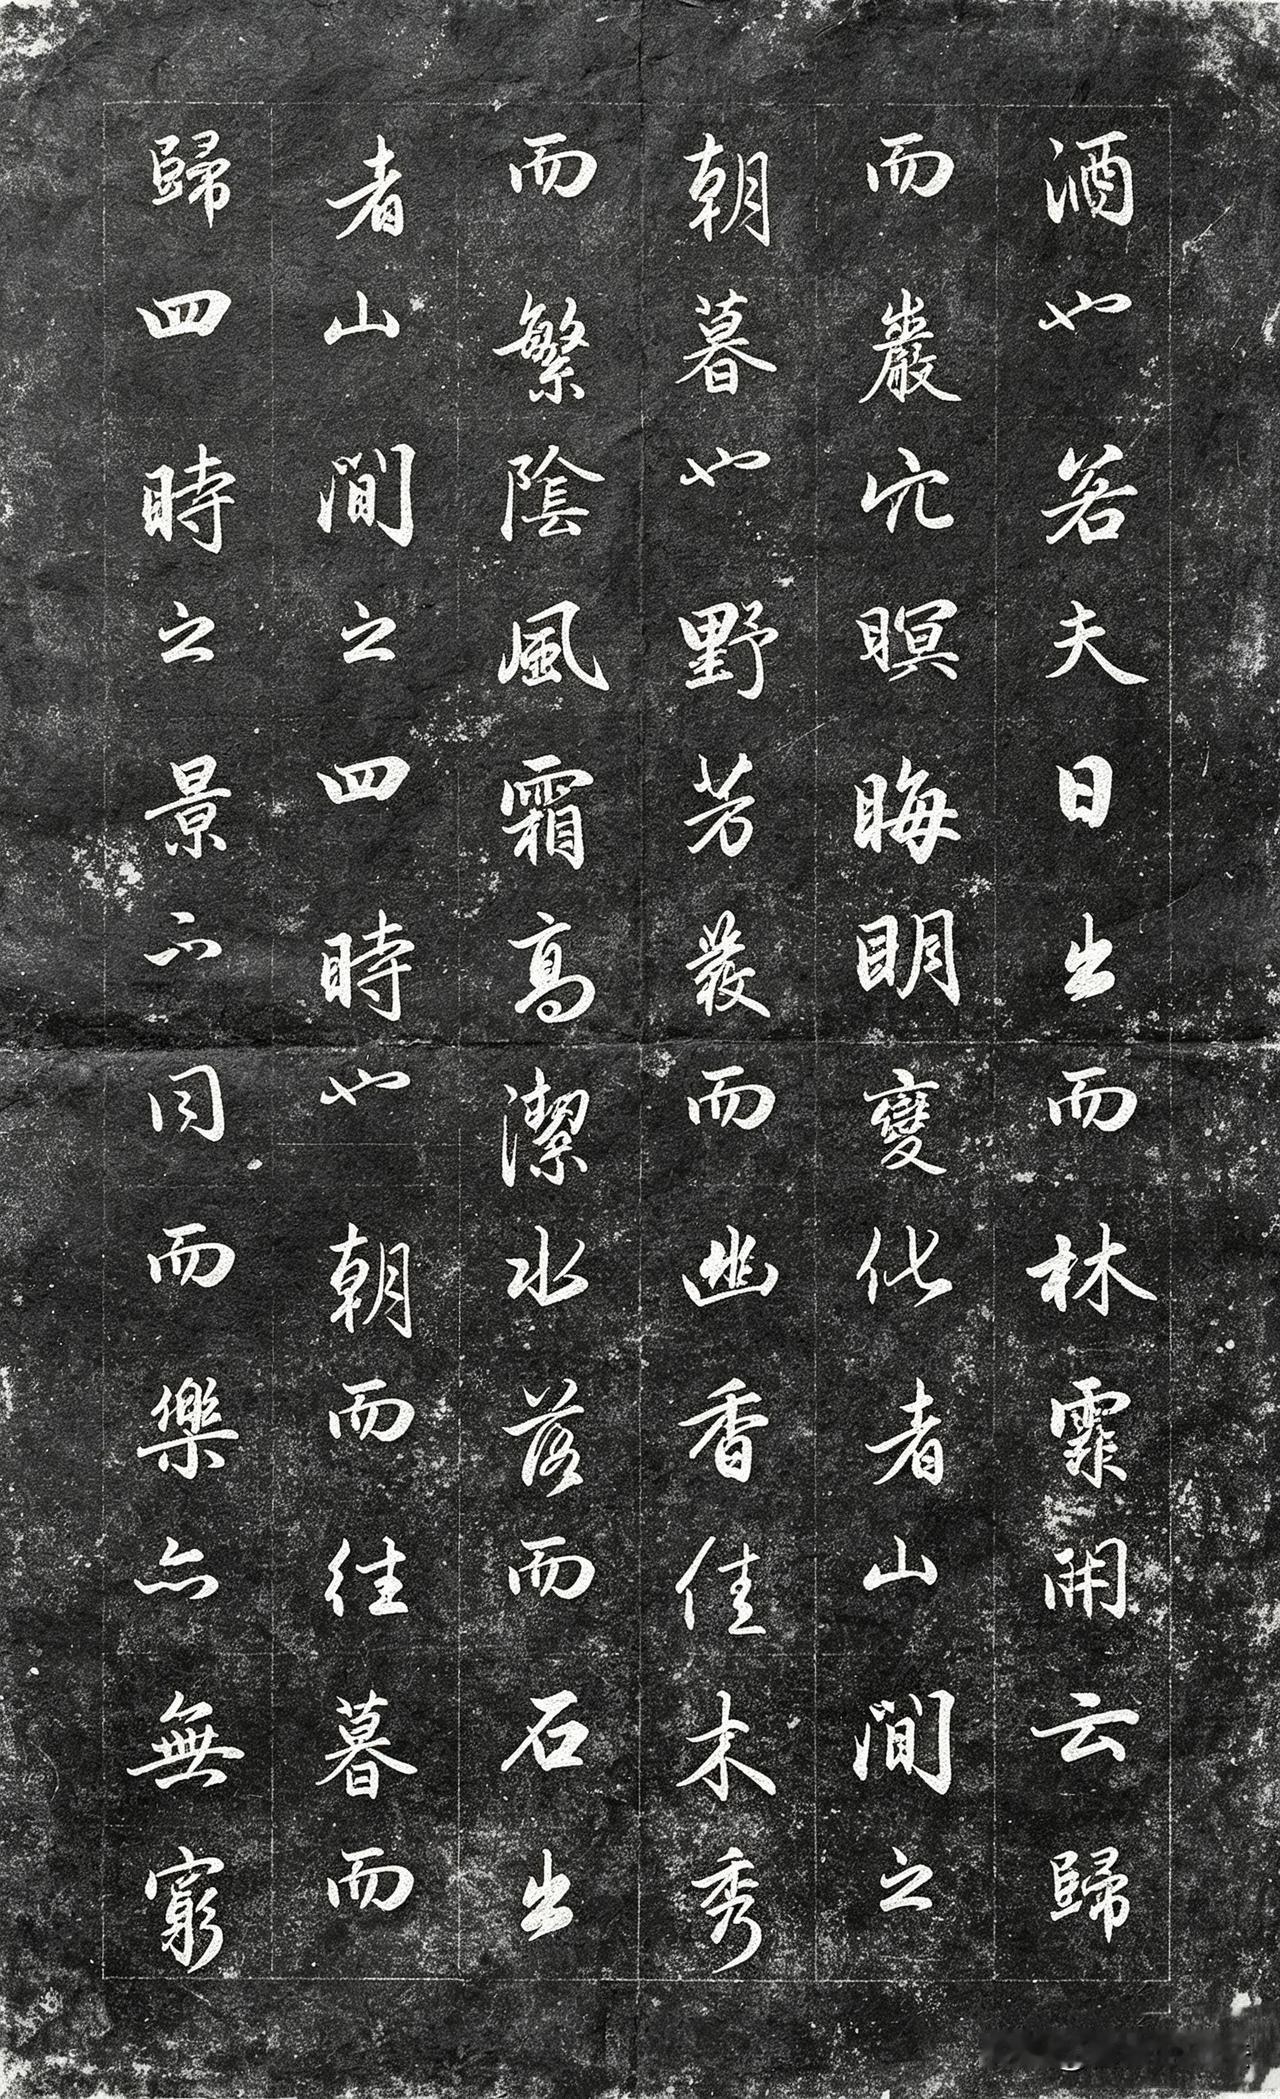 酒也若夫日出而林霏開云歸
而巖穴暝晦明變化者山間之
朝暮也野芳發而幽香佳木秀
而繁陰風霜高潔水落而石出
者山間之四時也朝而往暮而
歸四時之景不同而樂亦無窮